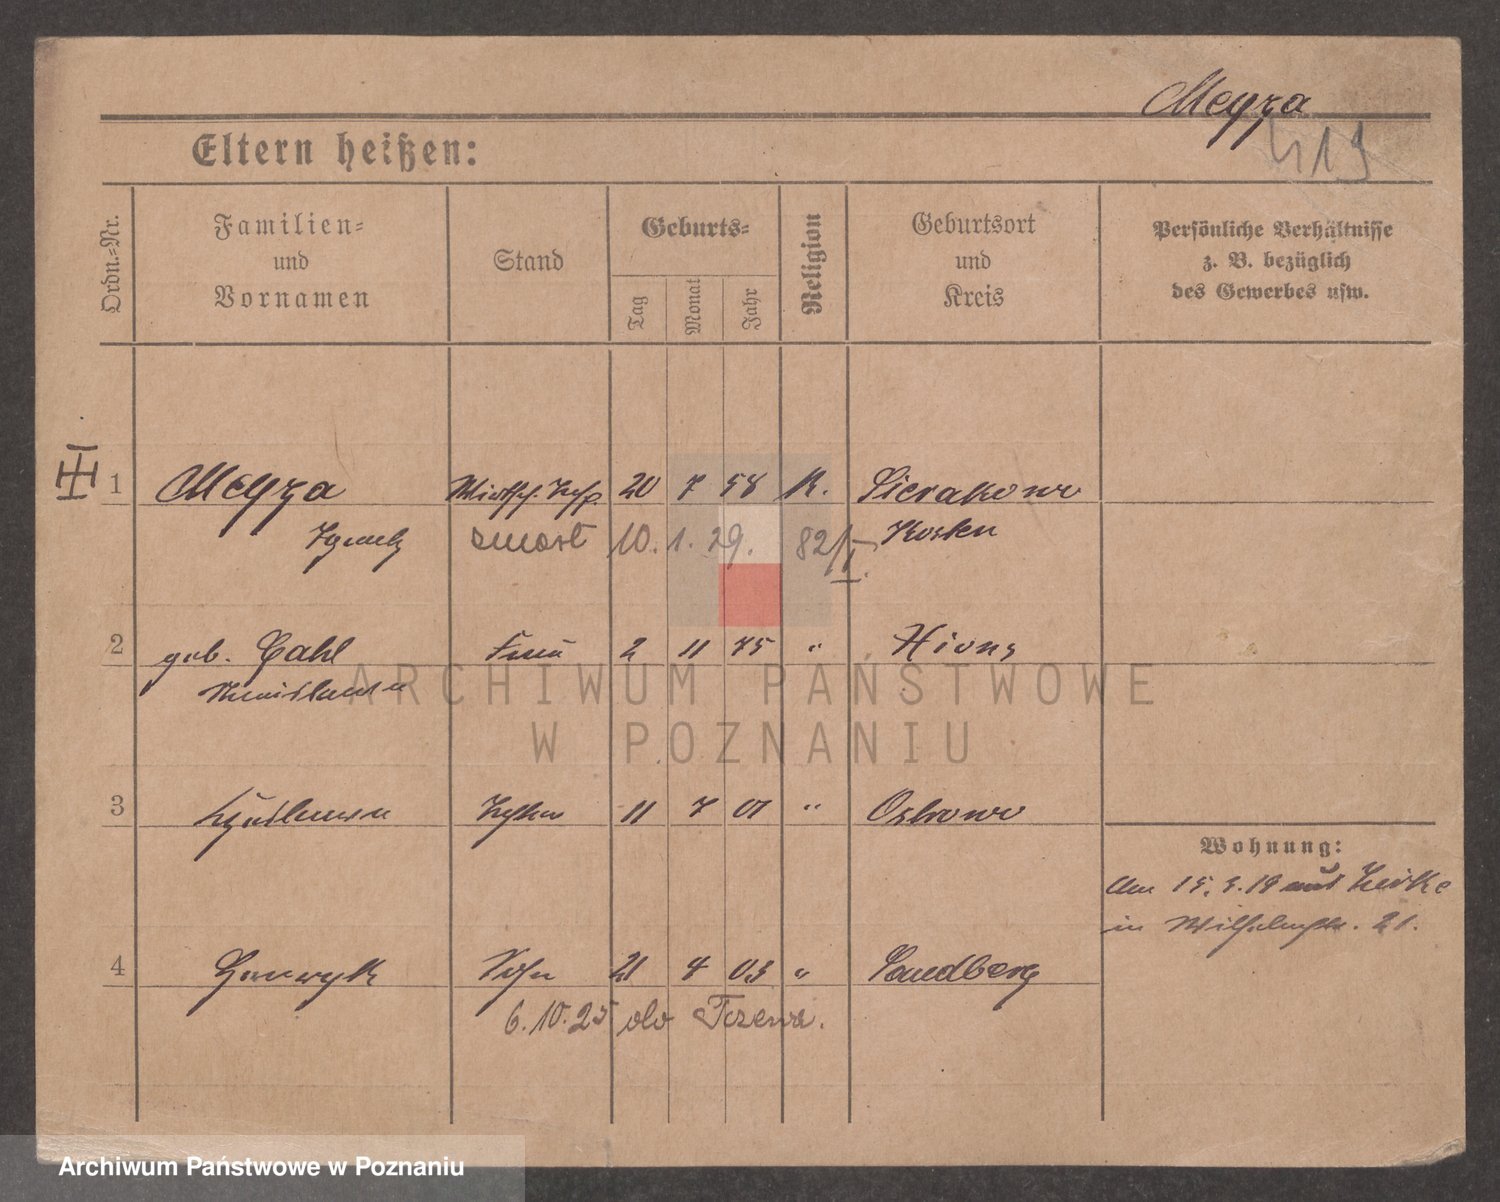 Meyza
419
Eltern heißen:
Ordn.=Nr.
Familien=
und
Vornamen
Stand
Geburts=
Tag
Monat
Jahr
Religion
Geburtsort
und
Kreis
Persönliche Verhältnisse
z. B. bezüglich
des Gewerbes usw.
1 Meyza Wirtsch. Insp. 20 7 58 K. Sierakowo
Ignatz zmarł 10. 1. 29. 82/I. Kosten
2 geb. Gahl Frau 2 11 75 " Xions
Stanislawa
3 Tochter 11 7 01 " Ostrowo
Wohnung:
Am 15. 3. 19 aus Zirke
in Wilhelmstr. 21.
4 Henryk Sohn 21 4 03 " Sandberg
6.10.25 do Tczewa.
ARCHIWUM PAŃSTWOWE
W POZNANIU
Archiwum Państwowe w Poznaniu